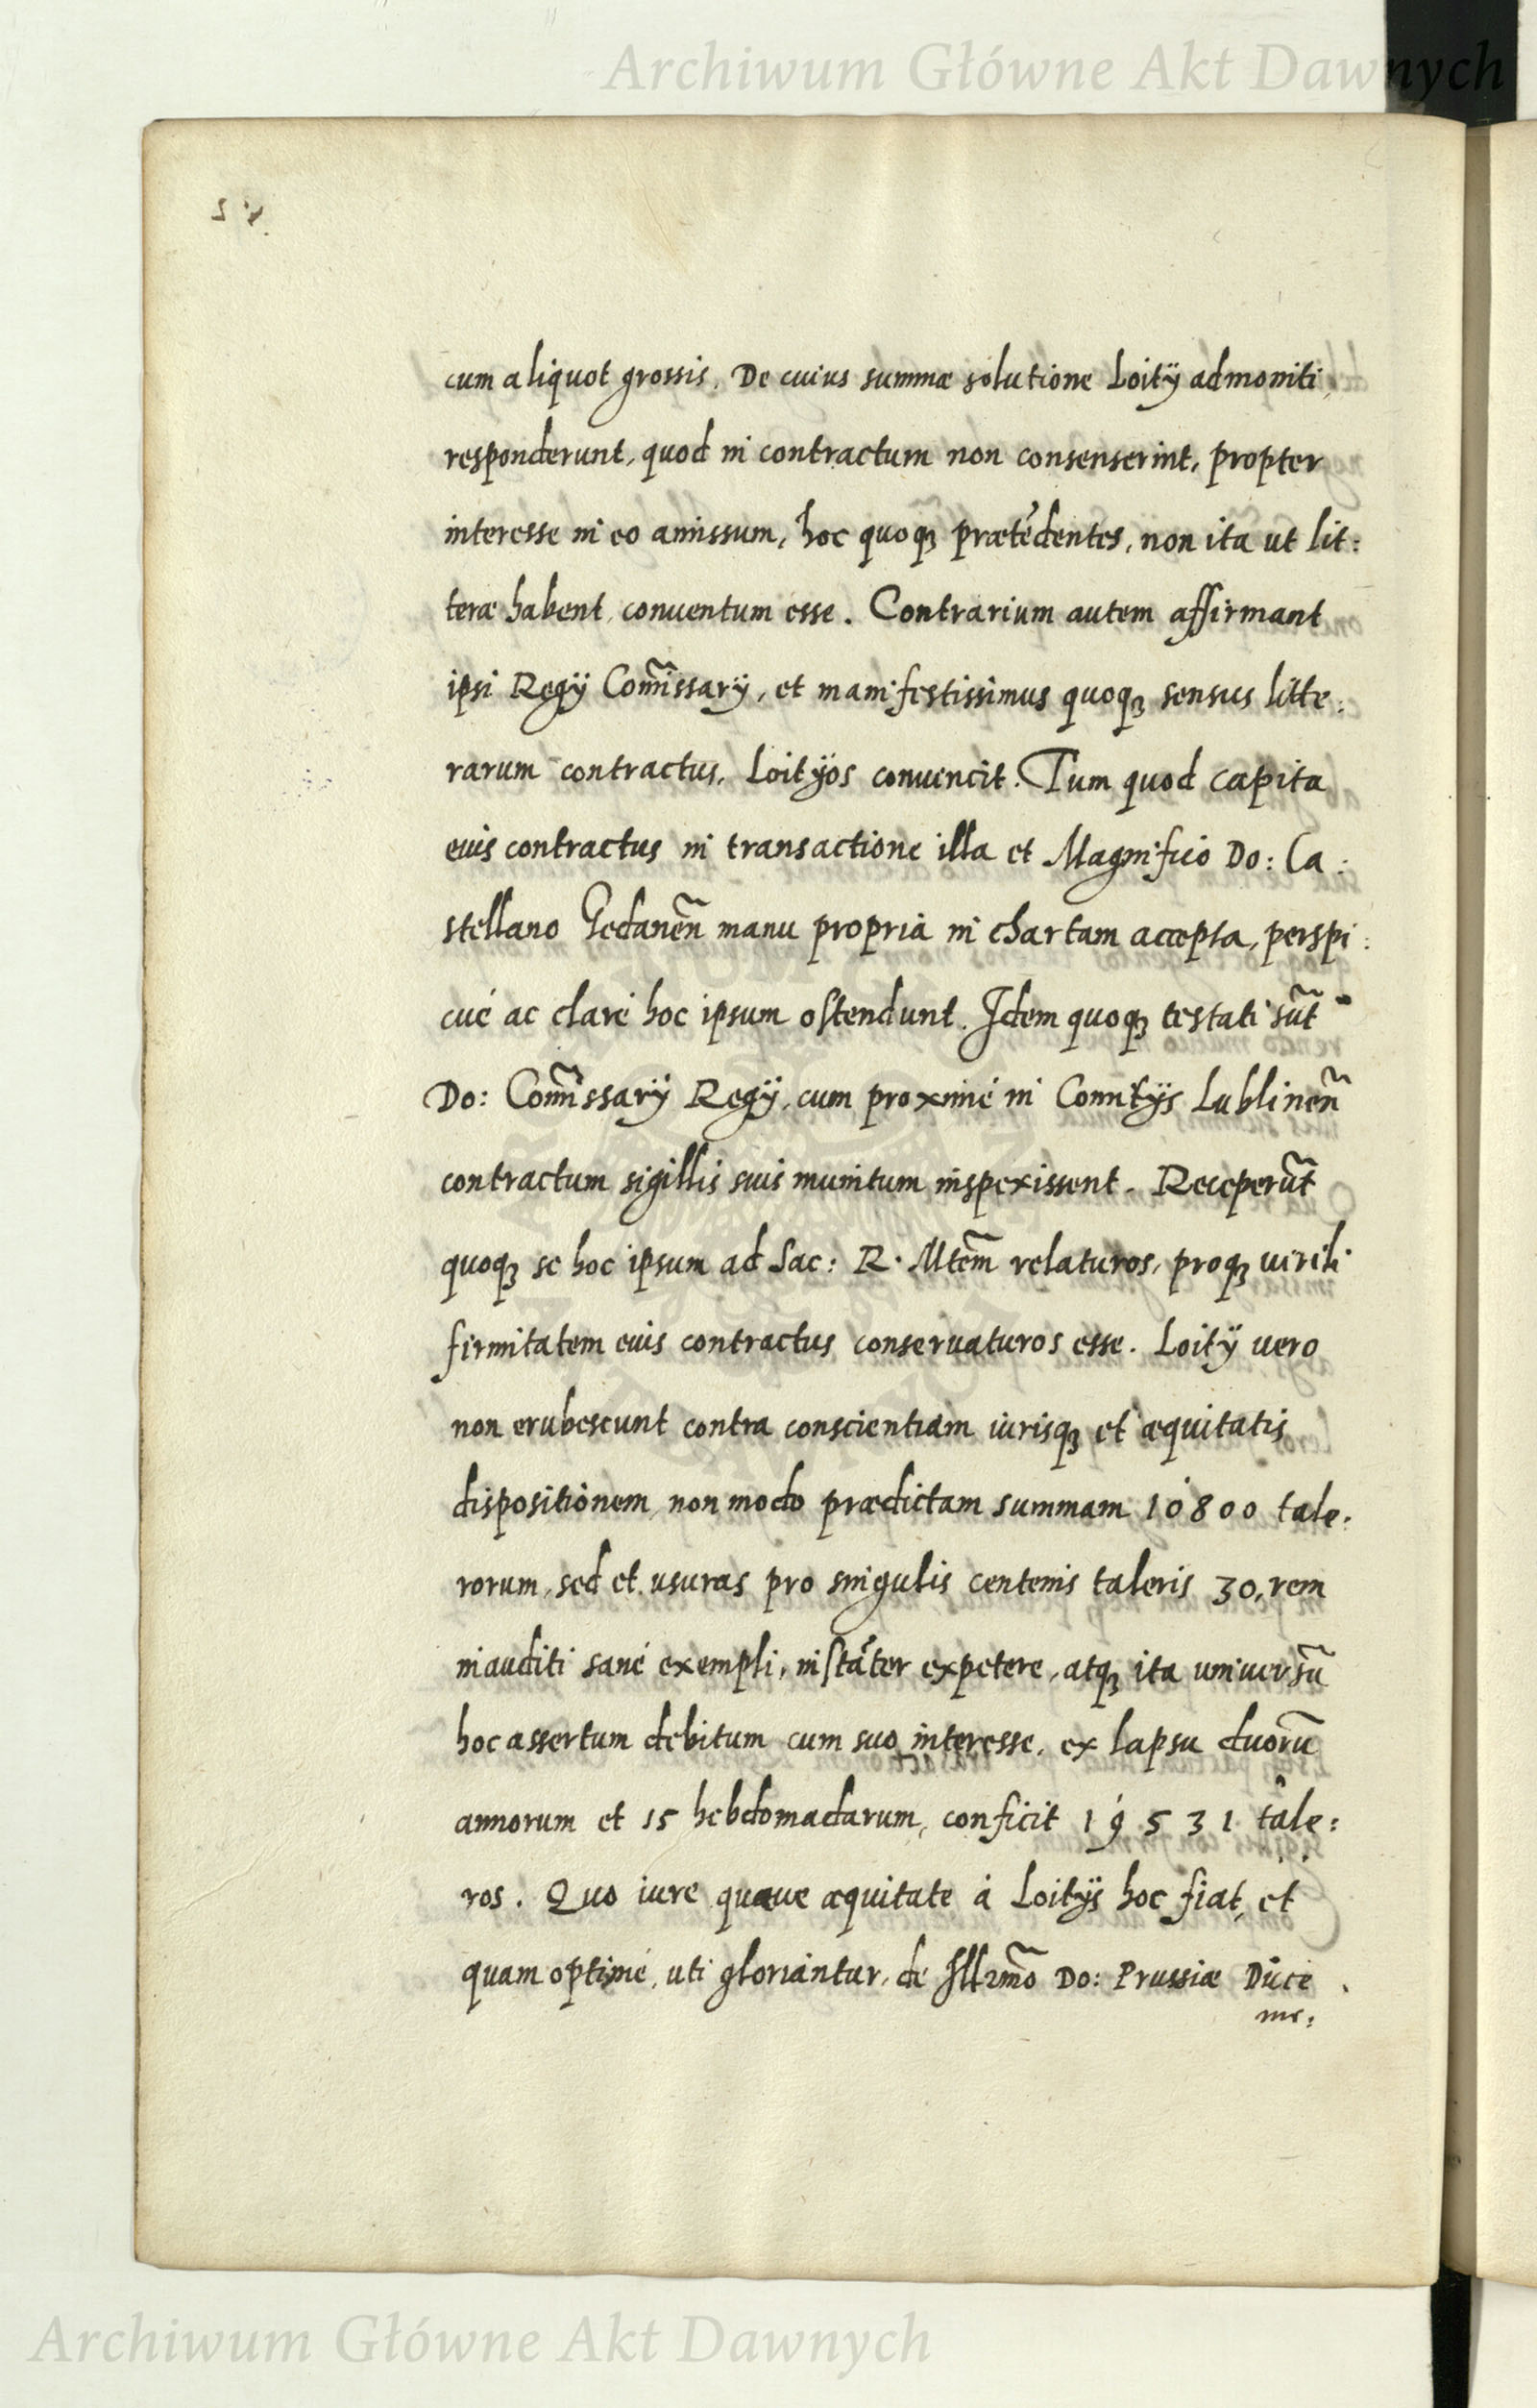 Archiwum Główne Akt Dawnych
cum aliquot grossis. De cuius summæ solutione Loitÿ admoniti,
responderunt, quod in contractum non consenserint, propter
interesse in eo amissum, hoc quoq₃ prætēdentes, non ita ut lit:
teræ habent, conuentum esse. Contrarium autem affirmant
ipsi Regÿ Com̃issarÿ, et manifestissimus quoq₃ sensus litte:
rarum contractus, Loitÿos conuincit. Tum quod capita
euis contractus in transactione illa et Magnifico Do: Ca:
stellano Gedaneñ manu propria in chartam accepta, perspi:
cué ac claré hoc ipsum ostendunt. Idem quoq₃ testati sūt
Do: Com̃issarÿ Regÿ, cum proximé in Comitÿs Lublineñ
contractum sigillis suis munitum inspexissent. Receperūt
quoq₃ se hoc ipsum ad Sac: R. Mtem̃ relaturos, proq₃ virili
firmitatem euis contractus conseruaturos esse. Loitÿ vero
non erubescunt contra conscientiam iurisq₃ et æquitatis
dispositionem, non modo prædictam summam 10800 tale:
rorum, sed et usuras pro singulis centenis taleris 30, rem
inauditi sané exempli, instāter expetere, atq₃ ita uniuersū
hoc assertum debitum cum suo interesse, ex lapsu duorū
annorum et 15 hebdomadarum, conficit 19531 tale:
ros. Quo iure quaue æquitate á Loitÿs hoc fiat, et
quam optimé, uti gloriantur, de Illrm̃o Do: Prussiæ Duce
me:
Archiwum Główne Akt Dawnych